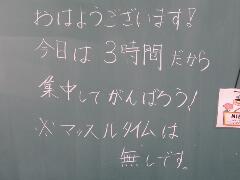 おはようございます!
今日は3時間だから
集中してがんばろう!
※マッスルタイムは
無しです。